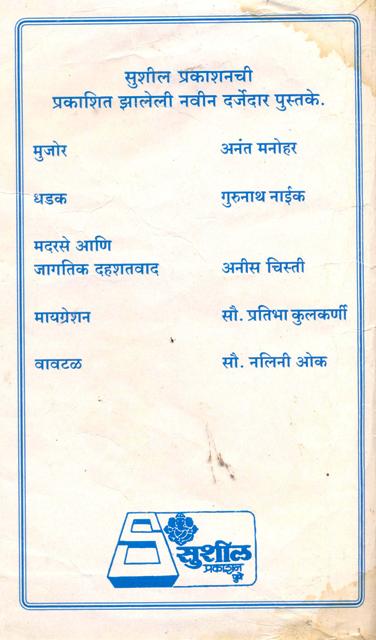 सुशील प्रकाशनची
प्रकाशित झालेली नवीन दर्जेदार पुस्तके.
मुजोर अनंत मनोहर
धडक गुरुनाथ नाईक
मदरसे आणि
जागतिक दहशतवाद अनीस चिस्ती
मायग्रेशन सौ. प्रतिभा कुलकर्णी
वावटळ सौ. नलिनी ओक
सुशील
प्रकाशन
पुणे